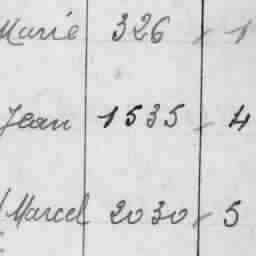 Marie 326 - 1
Jean 1535 - 4
Marcel 2030 - 5